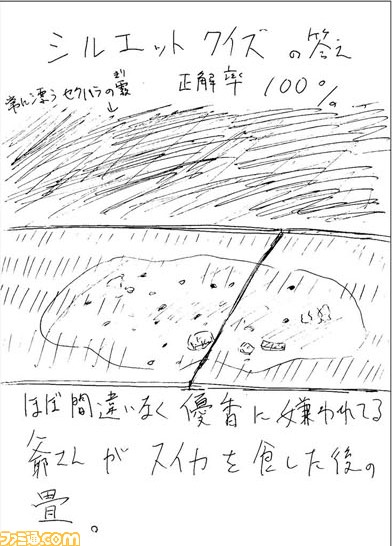 シルエットクイズの答え
正解率 100%
常に漂うセクハラの霞
ほぼ間違いなく優香に嫌われてる
爺さんがスイカを食した後の
畳。
ファミ通.com